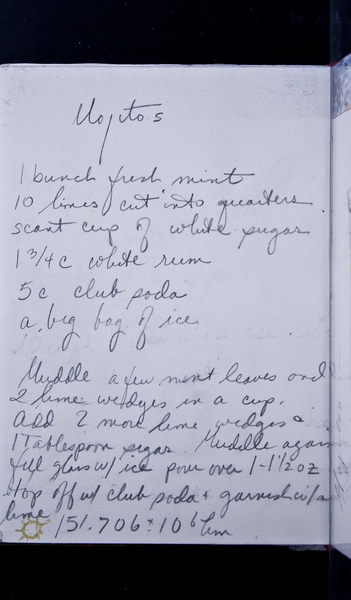 Mojitos
1 bunch fresh mint
10 limes cut into quarters
scant cup of white sugar
1 3/4 c white rum
5 c club soda
a big bag of ice
Muddle a few mint leaves and
2 lime wedges in a cup.
Add 2 more lime wedges &
1 Tablespoon sugar Muddle again
fill glass w/ ice pour over 1-1 1/2 oz
top off w/ club soda + garnish w/ a
lime